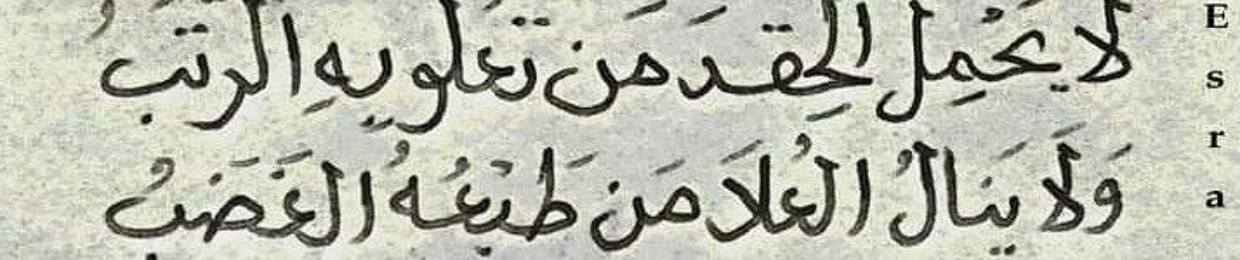 لَا يَحْمِلُ الحِقدَ مَن تَعلو بِهِ الرتَبُ
وَلَا يَنالُ العُلَا مَن طَبْعُهُ الغَضَبُ
E
s
r
a